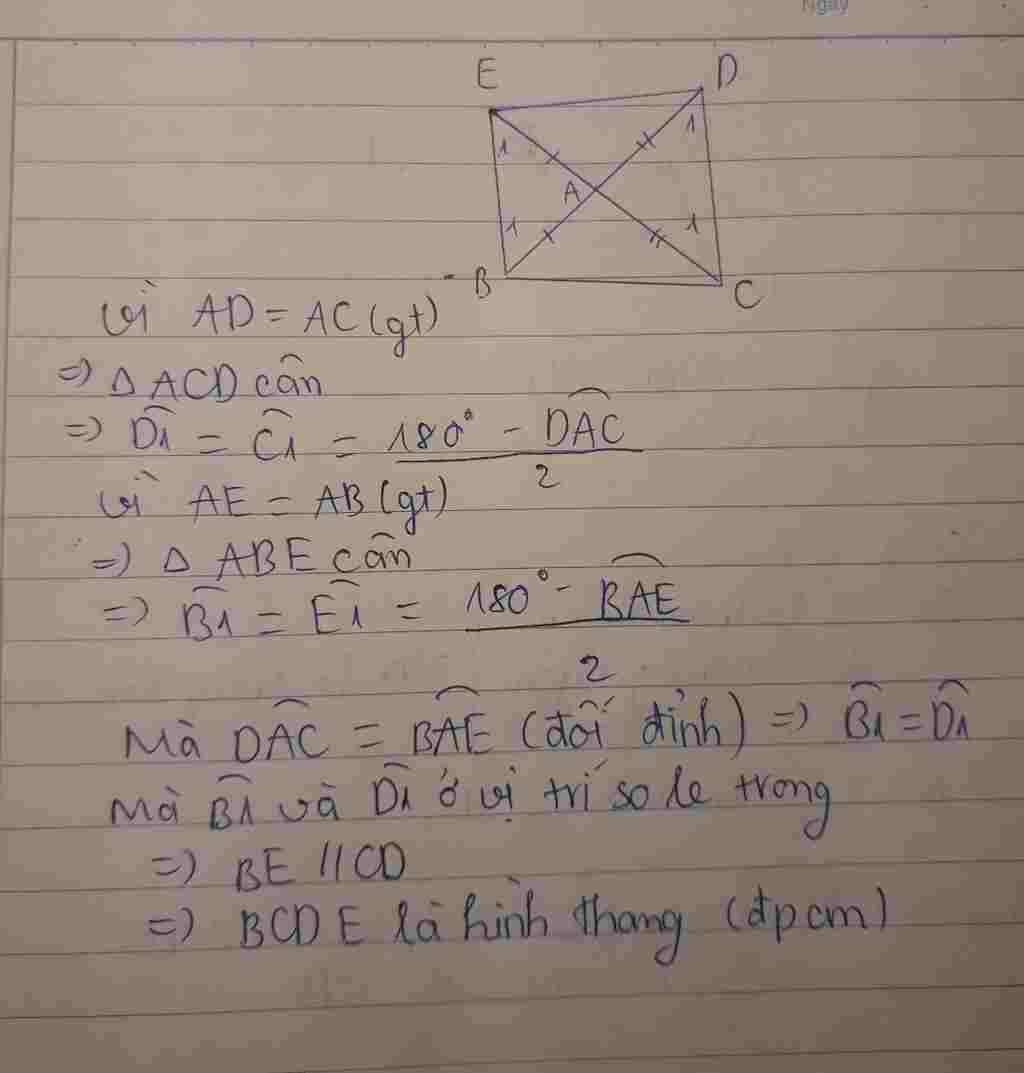 Ngày
E D
1 1
A
1 1
B C
Vì AD = AC (gt)
=> Δ ACD cân
=> D̂1 = Ĉ1 = (180° - DAĈ) / 2
Vì AE = AB (gt)
=> Δ ABE cân
=> B̂1 = Ê1 = (180° - BAÊ) / 2
Mà DAĈ = BAÊ (đối đỉnh) => B̂1 = D̂1
Mà B̂1 và D̂1 ở vị trí so le trong
=> BE // CD
=> BCDE là hình thang (đpcm)